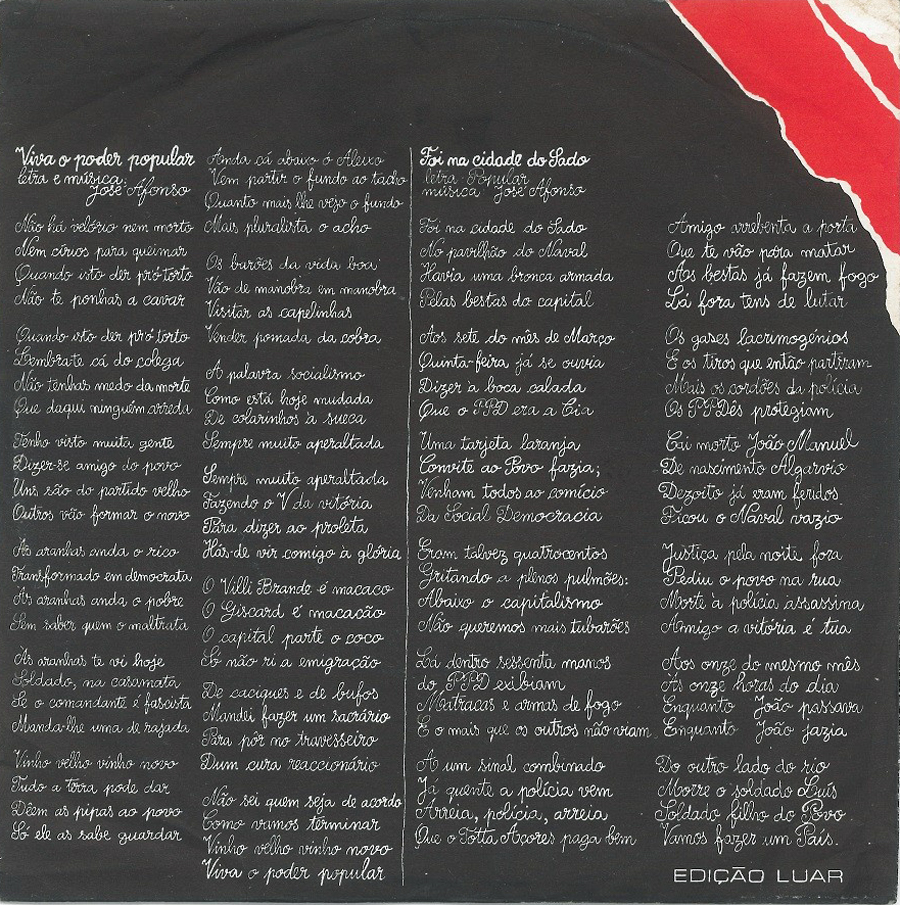 Viva o poder popular
letra e música:
José Afonso
Não há velório nem morto
Nem círios para queimar
Quando isto der pró torto
Não te ponhas a cavar
Quando isto der pró torto
Lembra-te cá do colega
Não tenhas medo da morte
Que daqui ninguém arreda
Tenho visto muita gente
Dizer-se amigo do povo
Uns são do partido velho
Outros vão formar o novo
Às aranhas anda o rico
Transformado em democrata
Às aranhas anda o pobre
Sem saber quem o maltrata
Às aranhas te vi hoje
Soldado, na casamata
Se o comandante é fascista
Manda-lhe uma de rajada
Vinho velho vinho novo
Tudo a terra pode dar
Dêem as pipas ao povo
Só ele as sabe guardar
Anda cá abaixo ó Aleixo
Vem partir o fundo ao tacho
Quanto mais lhe vejo o fundo
Mais pluralista o acho
Os barões da vida boa
Vão de manobra em manobra
Visitar as capelinhas
Vender pomada da cobra
A palavra socialismo
Como está hoje mudada
De colarinhos à sueca
Sempre muito aperaltada
Sempre muito aperaltada
Fazendo o V da vitória
Para dizer ao proleta
Hás-de vir comigo à glória
O Villi Brande é macaco
O Giscard é macacão
O capital parte o coco
Só não ri a emigração
De caciques e de bufos
Mandei fazer um sacrário
Para pôr no travesseiro
Dum cura reaccionário
Não sei quem seja de acordo
Como vamos terminar
Vinho velho vinho novo
Viva o poder popular
Foi na cidade do Sado
letra Popular
música José Afonso
Foi na cidade do Sado
No pavilhão do Naval
Havia uma bronca armada
Pelas bestas do capital
Aos sete do mês de Março
Quinta-feira já se ouvia
Dizer à boca calada
Que o PPD era a Cia
Uma tarjeta laranja
Convite ao Povo fazia;
Venham todos ao comício
Da Social Democracia
Eram talvez quatrocentos
Gritando a plenos pulmões:
Abaixo o capitalismo
Não queremos mais tubarões
Lá dentro sessenta manos
do PPD exibiam
Matracas e armas de fogo
E o mais que os outros não viam
A um sinal combinado
Já quente a polícia vem
Arreia, polícia, arreia
Que o Totta Açores paga bem
Amigo arrebenta a porta
Que te vão pára matar
Aos bestas já fazem fogo
Lá fora tens de lutar
Os gases lacrimogénios
E os tiros que então partiram
Mais os cordões da polícia
Os PPDês protegiam
Cai morto João Manuel
De nascimento Algarvio
Dezoito já eram feridos
Ficou o Naval vazio
Justiça pela noite fora
Pediu o povo na rua
Morte à polícia assassina
Amigo a vitória é tua
Aos onze do mesmo mês
Às onze horas do dia
Enquanto João passava
Enquanto João jazia
Do outro lado do rio
Morre o soldado Luís
Soldado filho do Povo
Vamos fazer um País.
EDIÇÃO LUAR